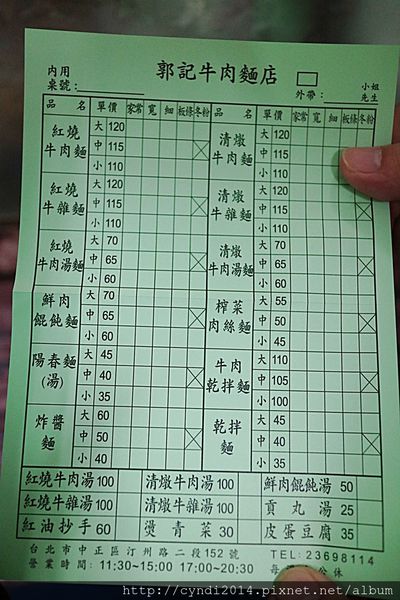 郭記牛肉麵店
內用
桌號:
外帶:
小姐
先生
品名 單價 家常 寬 細 板條 冬粉 品名 單價 家常 寬 細 板條 冬粉
紅燒牛肉麵 大 120 中 115 小 110
清燉牛肉麵 大 120 中 115 小 110
紅燒牛雜麵 大 120 中 115 小 110
清燉牛雜麵 大 120 中 115 小 110
紅燒牛肉湯麵 大 70 中 65 小 60
清燉牛肉湯麵 大 70 中 65 小 60
鮮肉餛飩麵 大 70 中 65 小 60
榨菜肉絲麵 大 55 中 50 小 45
陽春麵(湯) 大 45 中 40 小 35
牛肉乾拌麵 大 110 中 105 小 100
炸醬麵 大 60 中 50 小 40
乾拌麵 大 45 中 40 小 35
紅燒牛肉湯 100 清燉牛肉湯 100 鮮肉餛飩湯 50
紅燒牛雜湯 100 清燉牛雜湯 100 貢丸湯 25
紅油抄手 60 燙青菜 30 皮蛋豆腐 35
台北市中正區汀州路二段152號 TEL:23698114
營業時間:11:30~15:00 17:00~20:30 每 公休
http://cyndi2014.pixnet.net/album